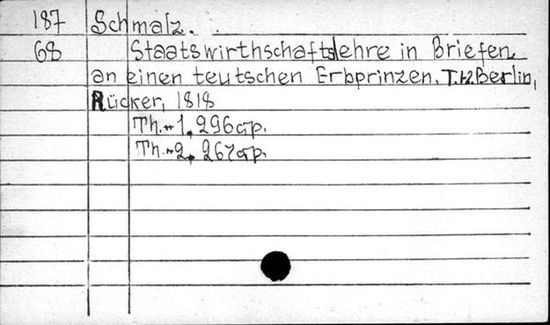 187 Schmalz.
68 Staatswirthschaftslehre in Briefen
an einen teutschen Erbprinzen. T.1.2. Berlin,
Rücker, 1818
Th.-1. 296 стр.
Th.-2. 267 стр.